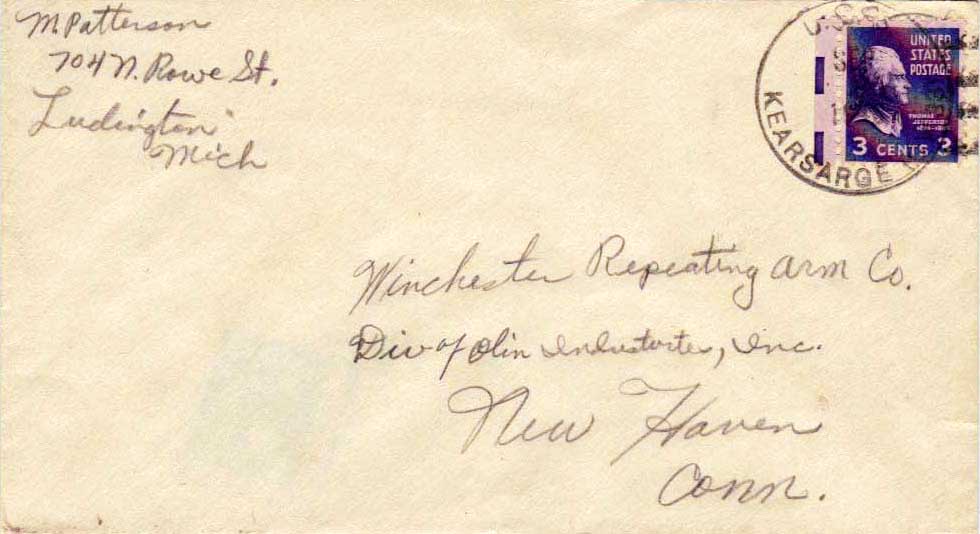 M. Patterson
704 N. Rowe St.
Ludington
Mich
U.S.S.
KEARSARGE
UNITED
STATES
POSTAGE
THOMAS
JEFFERSON
3 CENTS 3
Winchester Repeating Arm Co.
Div of Olin Industrtes, Inc.
New Haven
Conn.